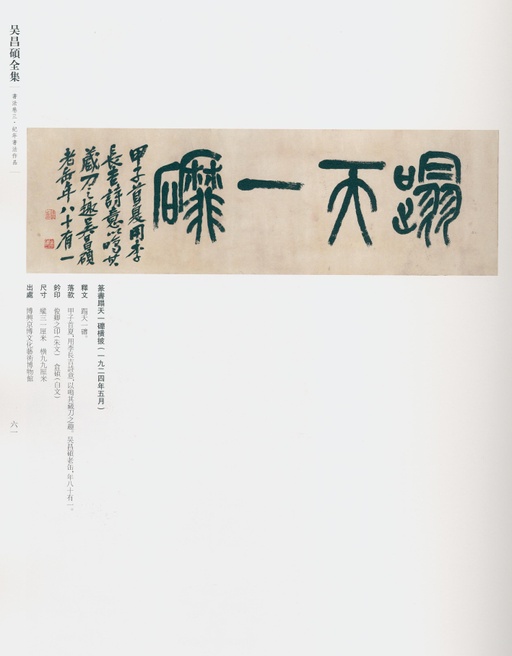 吴昌碩全集 書法卷三·紀年書法作品
蹋天一䃺
甲子首夏用李
長吉詩意以鳴其
藏刀之趣吳昌碩
老缶年八十有一
篆書蹋天一䃺橫披(一九二四年五月)
釋文 蹋天一䃺。
落款 甲子首夏,用李長吉詩意,以鳴其藏刀之趣。吳昌碩老缶,年八十有一。
鈐印 俊卿之印(朱文) 倉碩(白文)
尺寸 縱三一厘米 橫九九厘米
出處 博興京博文化藝術博物館
六一